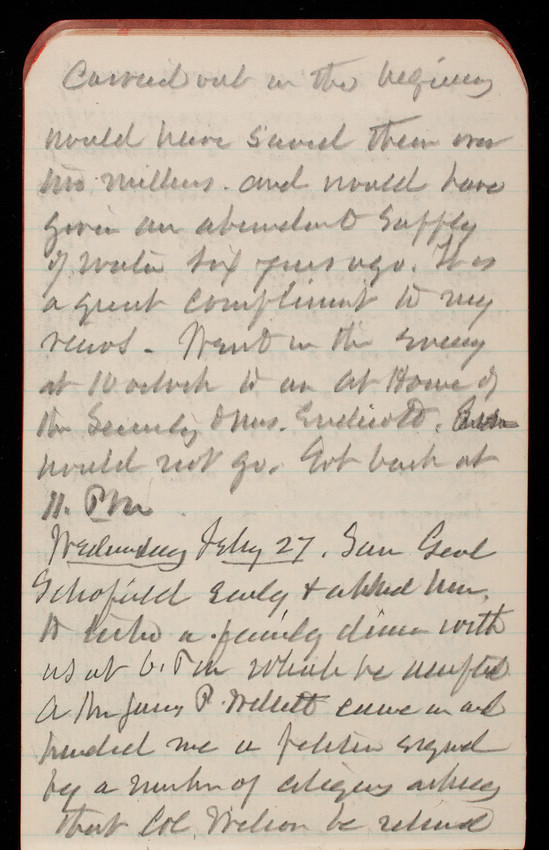 Carried out in the begining
would have saved them over
two millions. and would have
given an abundant supply
of water six years ago. It is
a great compliment to my
views. Went in the evening
at 10 oclock to an At Home of
the Secretary & Mrs. Endicott.
would not go. Got back at
11. P.M.
Wednesday Feby 27. Saw Genl
Schofield early & asked him
to take a family dinner with
us at 6. P.M. which he accepted
A Mr James P. Willett came in and
handed me a petition signed
by a number of citizens asking
that Col. Wilson be retained